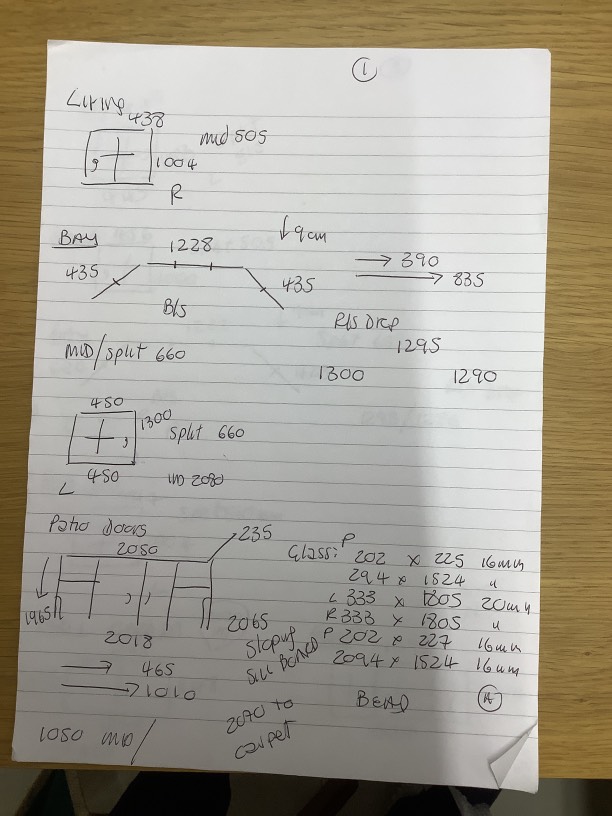 1
Living
438
mid 505
1004
R
BAY
1228
↓ 9cm
→ 390
→ 835
435
435
B/s
R/s Drop
1295
MID/split 660
1300
1290
450
1300
split 660
450
L
Patio doors
2050
235
1965
2018
2065
→ 465
→ 1010
1050 MID/
Glass: P 202 x 225 16mm
294 x 1524 "
L 333 x 1805 20mm
R 333 x 1805 "
P 202 x 227 16mm
2094 x 1524 16mm
Sill Board
2070 to
carpet
BEAD
A